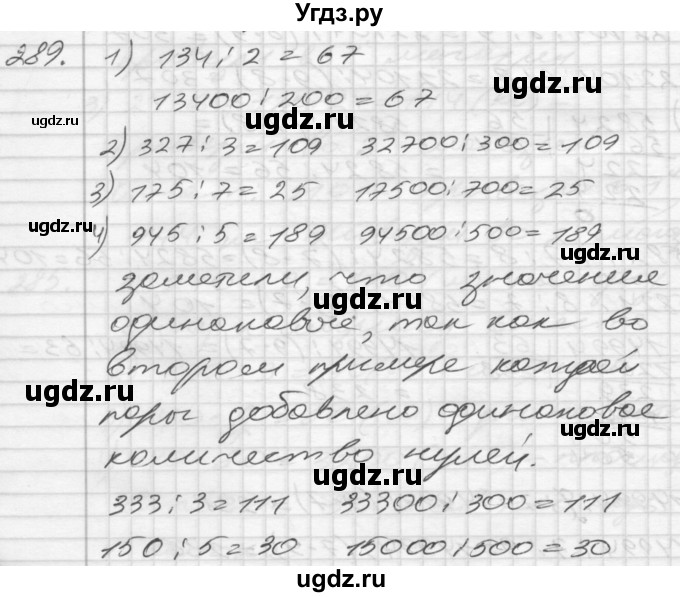 Угдз.ру
289. 1) 134 : 2 = 67
13400 : 200 = 67
2) 327 : 3 = 109 32700 : 300 = 109
3) 175 : 7 = 25 17500 : 700 = 25
4) 945 : 5 = 189 94500 : 500 = 189
заметили, что значения
одинаковые, так как во
втором примере каждой
пары добавлено одинаковое
количество нулей.
333 : 3 = 111 33300 : 300 = 111
150 : 5 = 30 15000 : 500 = 30
ugdz.ru
ugdz.ru
ugdz.ru
ugdz.ru
ugdz.ru
ugdz.ru
ugdz.ru
ugdz.ru
ugdz.ru
ugdz.ru
ugdz.ru